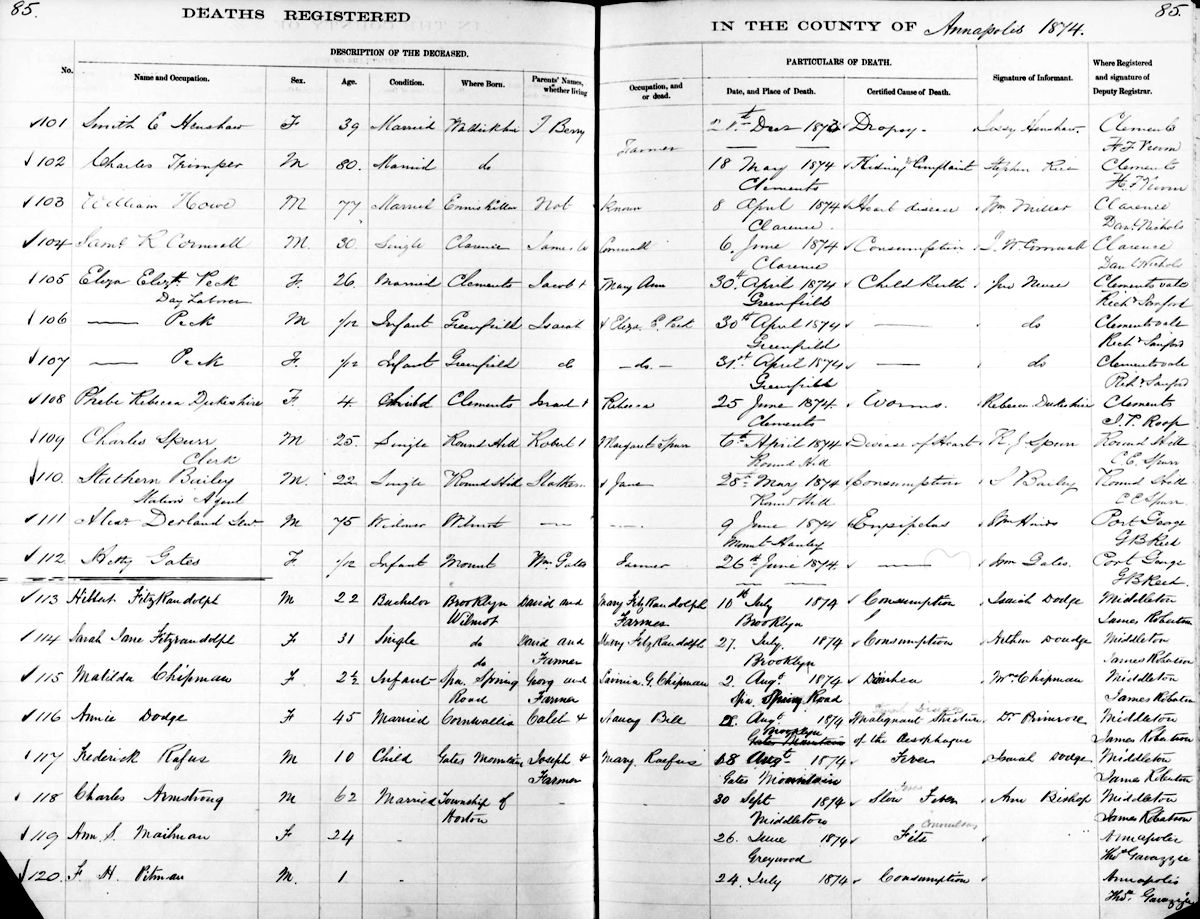 85.
DEATHS REGISTERED
IN THE COUNTY OF Annapolis 1874.
85.
DESCRIPTION OF THE DECEASED.
PARTICULARS OF DEATH.
No.
Name and Occupation.
Sex.
Age.
Condition.
Where Born.
Parents' Names, whether living
Occupation, and or dead.
Date, and Place of Death.
Certified Cause of Death.
Signature of Informant.
Where Registered and signature of Deputy Registrar.
101 Smith E Henshaw F 39 Married T Berry Decr 1873 Dropsy. Henshaw. Clements
Farmer
102 Charles Trimper M 80. Married do 18 May 1874 Kidney Complaint Stephen Rice Clements
Clements
103 William Howe M 77 Married Enniskillen Not known 8 April 1874 Heart disease Wm Millar Clarence
Clarence. Danl Nichols
104 Saml R Cornwall M. 30 Single Clarence James W Cornwall 6 June 1874 Consumption J. W. Cornwall Clarence
Clarence Danl Nichols
105 Eliza Elizth Peck F. 26 Married Clements Jacob & Mary Ann 30th April 1874 Child Birth Clementsvale
Day Laborer Greenfield Richd Sanford
106 — Peck M 1/12 Infant Greenfield Isaiah & Eliza. E. Peck 30th April 1874 — do Clementsvale
Greenfield Richd Sanford
107 — Peck F. 1/12 Infant Greenfield do —do.— 31st April 1874 — do Clementsvale
Greenfield Richd Sanford
108 Phebe Rebecca Dukeshire F. 4. Child Clements Israel & Rebecca 25 June 1874. Worms. Rebecca Dukeshire Clements
Clements J. P. Roop
109 Charles Spurr M 25 Single Round Hill Robert & Margaret Spurr 6th April 1874 Disease of Heart R. J. Spurr Round Hill
Clerk Round Hill E. E. Spurr
110. Stathern Bailey M 22 Single Round Hill Stathern & Jane 28th May 1874 Consumption S Bailey Round Hill
Station Agent Round Hill E E Spurr
111 M 75 Widower Wilmot — —.—. 9 June 1874 Erysipelas Wm Hinds Port George
Mount Hanley G B Reed
112 Hetty Gates F. 1/12 Infant Mount Wm Gates Farmer 26th June 1874. — Wm Gates. Port George
— — G B Reed.
113 Hibbert FitzRandolph M 22 Bachelor Brooklyn David and Mary FitzRandolph 10th July 1874 Consumption Isaiah Dodge Middleton
Wilmot Farmer Brooklyn James Robertson
114 Sarah Jane Fitzrandolph F 31 Single do David and Mary FitzRandolph 27. July. 1874 Consumption Arthur Doudge Middleton
do Farmer Brooklyn James Robertson
115 Matilda Chipman F 2½ Infant Spa. Spring Georg and Lavinia G. Chipman 2. Augt 1874 Diarrhea Mr. Chipman Middleton
Road Farmer Spa Spring Road James Robertson
116 Annie Dodge F 45 Married Cornwallis Caleb & Nancy Bill 28 Augt 1874 Malignant Stricture Dr Primrose Middleton
Brooklyn Gates Mountain of the Aesophagus James Robertson
117 Frederick Rafus M 10 Child Gates Mountain Joseph & Mary Raefus 18 Augt 1874 Fever Isaiah Dodge Middleton
Farmer Gates Mountain James Robertson
118 Charles Armstrong M 62 Married Township of 30 Sept 1874 Slow Fever Ann Bishop Middleton
Horton Middleton James Robertson
119 Ann S. Mailman F 24 - 26. June 1874 Fits Annapolis
Convulsions
Greywood Thos Gavazzie
120. F. H. Pitman M. 1 - 24 July 1874 Consumption Annapolis
Thos. Gavazzie